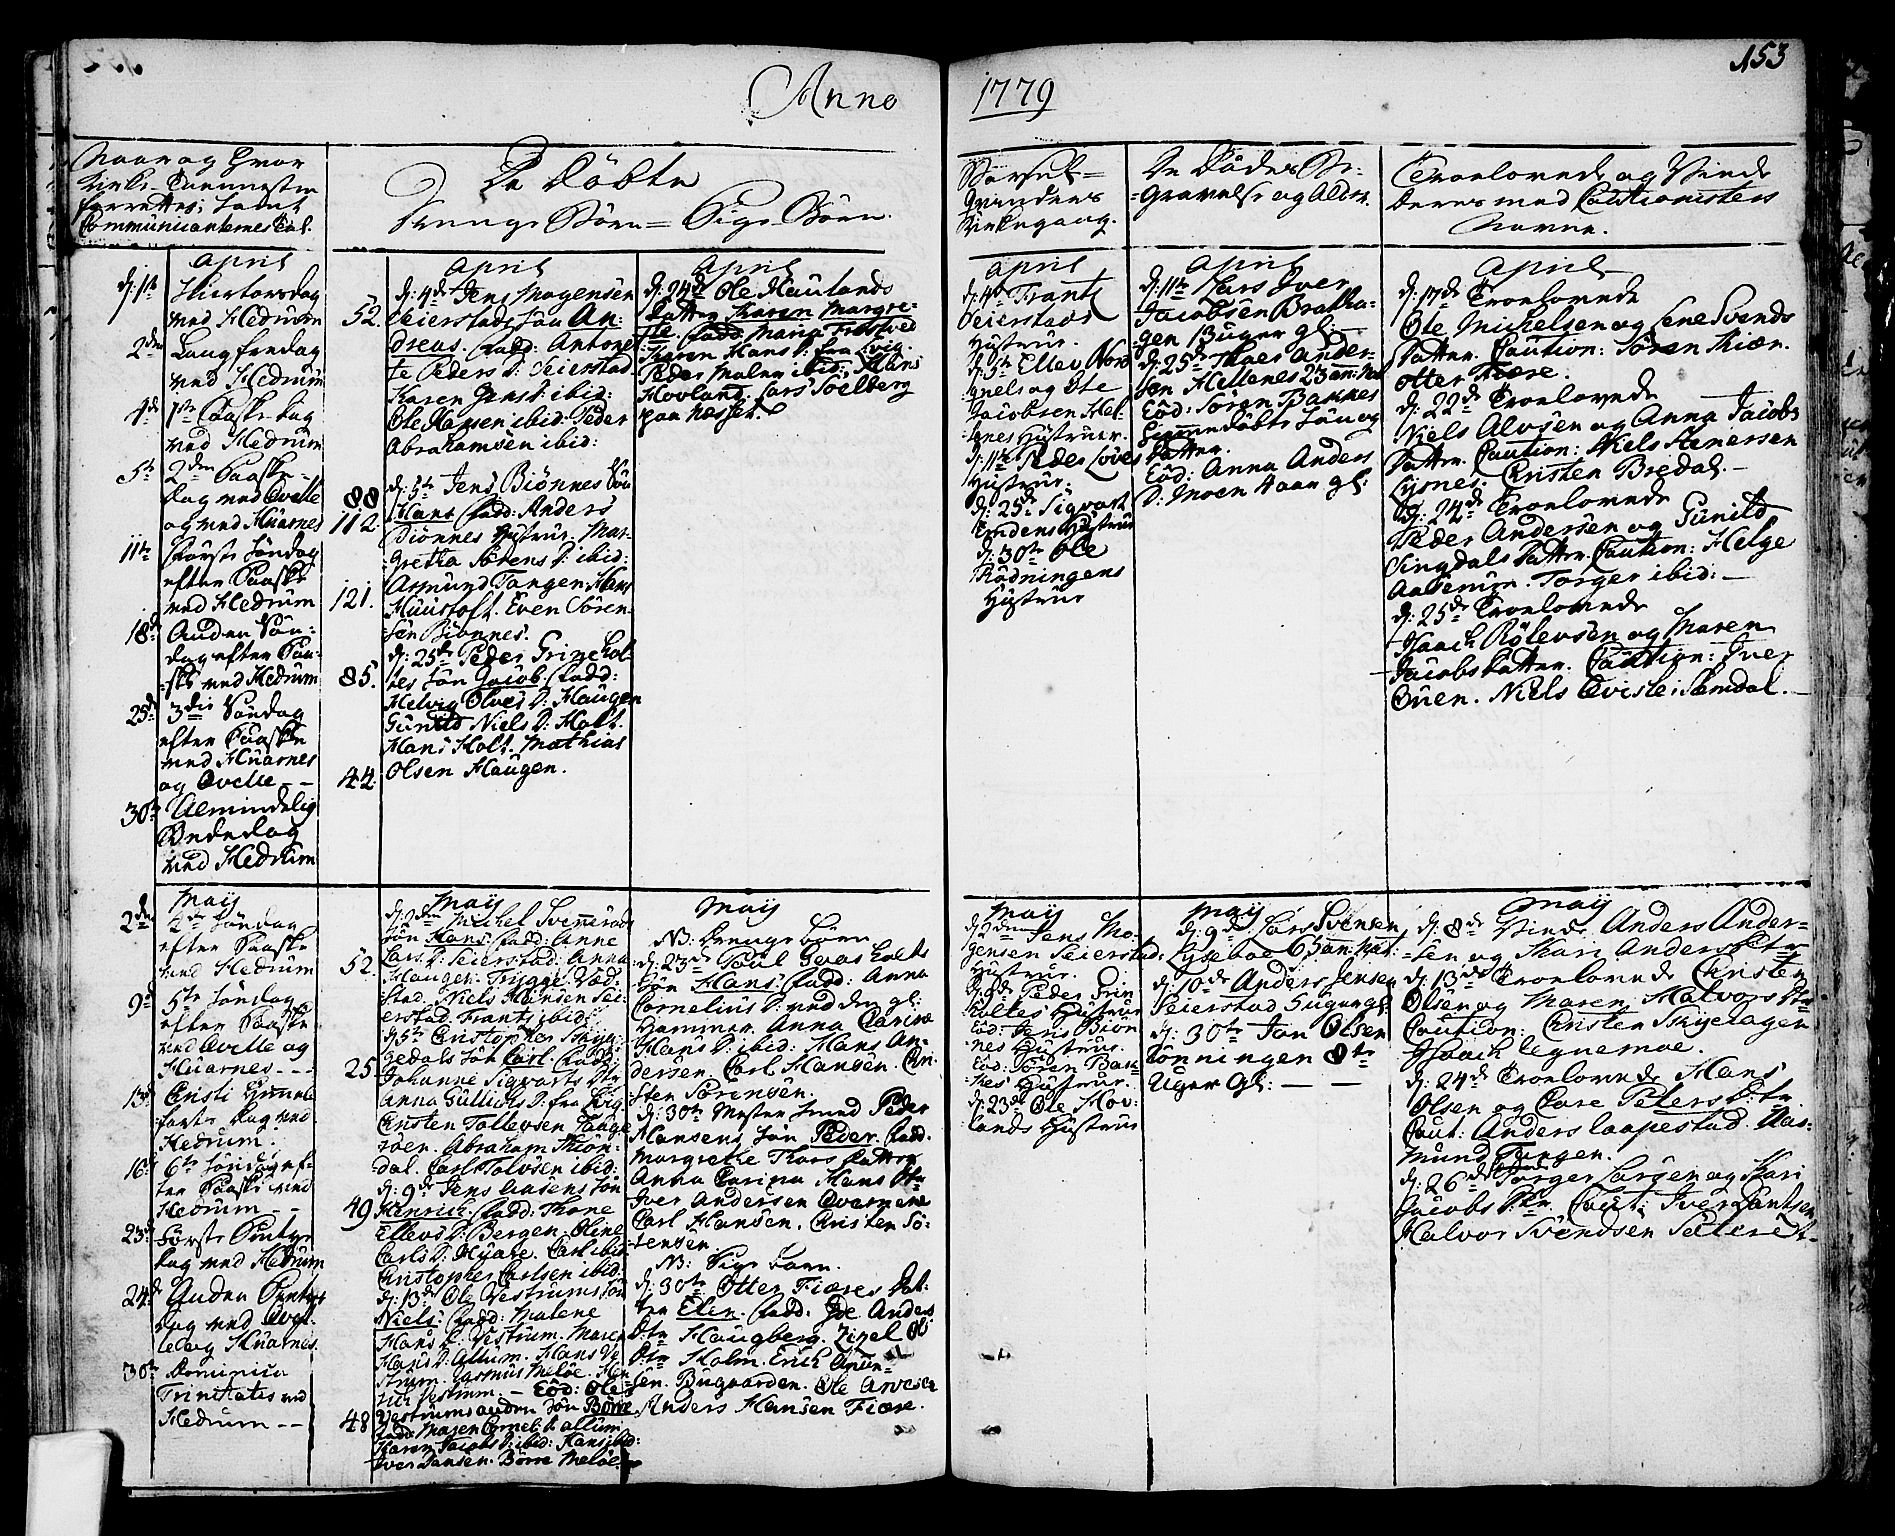 153
Anno 1779
Naar og Hvor
Kirke-Tienesten
forrettes; samt
Communicanternes Tal.
De Döbte
Drenge Börn = Pige-Börn.
Barsel=
Qvinders
Kirkegang.
De Dödes Be=
=gravelse og Alder.
Troelovede og Viede
deres med Cautionisters
Navne.
April
d: 1ste Skiertorsdag
ved Hedrum
2den Langfredag
ved Hedrum
4de 1ste Paaske dag
ved Hedrum
5te 2den Paaske-
dag ved Qvelle
og ved Hvarnes
11te Förste Söndag
efter Paaske
ved Hedrum
18de Anden Sön-
dag efter Paa-
ske ved Hedrum
25de 3die Söndag
efter Paaske
ved Hvarnes
og Qvelle - -
30te Almindelig
Bededag
ved Hedrum
52.
88
112
121.
85.
44.
April
d: 4de Jens Mogensen
Seierstads Sön An=
dreas. Fadd: Antonet
te Peders D: Seierstad
Karen Jens D: ibid:
Ole Hansen ibid: Peder
Abrahamsen ibid:
d: 5te Jens Biönnes Sön
Hans Fadd: Anders
Biönnes Hustrue. Mar-
gretha Sörens D: ibid:
Asmund Tangen. Hans
Huustoft. Even Sören-
sen Biönnes.
d: 25de Peder Grinehol-
tes Sön Jacob. Fadd:
Helvig Olves D: Haugen
Gunild Niels D: Holt.
Hans Holt. Mathias
Olsen Haugen.
April
d: 24de Ole Haulands
Datter Karen Margre-
the. Fadd: Maria Trosved
Karen Hans D: fra Lvig.
Peder Maler ibid: Hans
Hovland. Lars Soelberg
paa Næsset.
April
d: 4de Frantz
Seierstads
Hustrue.
d: 5te Ellev Nord
gnels og Ole
Jacobsen Hel-
lenes Hustruer.
d: 11te Peder Loves
Hustrue.
d: 25de Sigvart
Endens Hustrue
d: 30te Ole
Rödningens
Hustrue
April
d: 11te Lars Iver
Jacobsen Bratha-
gen 13 Uger gl: -
d: 25de Thoes Ander-
sen Hellenes 23 am: Nat
Eöd: Sören Bakkes
hiemmedöbte Sön og
Datter.
Eöd: Anna Anders
D: Moen 4 aar gl:
April
d: 17de Troelovede
Ole Michelsen og Lene Svends
Datter. Caution: Sören Skiæn.
Otter Fiære.
d: 22de Troelovede
Niels Alvsen og Anna Jacobs
Datter. Caution: Niels Hanersen
Lysnes: Christen Bredal. -
d: 24de Troelovede
Peder Andersen og Gunild
Singdals Datter. Caution: Helge
Aaserum. Torger ibid: -
d: 25de Troelovede
Isaach Rölevsen og Maren
Jacobs Datter. Caution: Iver
Oüen. Niels Qviste: Samdal. -
May
2den 4de Söndag
efter Paaske
ved Hedrum
9de 5te Söndag
efter Paaske
ved Qvelle og
Hvarnes - - -
13de Christi Himmel
farts dag ved
Hedrum.
16de 6te Söndag ef-
ter Paaske ved
Hedrum - -
23de Förste Pintse
dag ved Hedrum
24de Anden Pintse
dag ved Qvel-
le og Hvarnes.
30te Dominica
Trinitatis ved
Hedrum - -
52.
25
49
48
May
d: 2den Michel Svennerods
Sön Hans. Fadd: Anne
Lars D: Seierstad. Anna
Hauger. Trygge Vad-
stad. Niels Hansen Sei-
erstad. Frantz ibid:
d: 5te Christopher Hage-
gedals Sön Carl. Fadd:
Johanne Sigvarts Dtr
Anna Gullichs D: fra Lvig.
Christen Tollevsen Tange
roer. Abraham Thiön-
dal. Carl Tolvsen ibid:
d: 9de Jens Aasens Sön
Henrich. Fadd: Thone
Ellevs D: Bergen. Oline
Carls D: Huare. Carl ibid:
Christopher Carlsen ibid:
d: 13de Ole Vestrums Sön
Niels: Fadd: Malene
Hans D. Vestrum. Maren
Hans D: Allum. Hans Ve-
strum. Rasmus Melöe. Hen-
rich Vestrum. - Eöd: Oles
Vestrums anden Sön Börre.
Fadd: Maren Cornel: D. Allum.
Karen Jacobs D: ibid: Hans ibid:
Iver Jansen. Börre Melöe.
May
NB: Drenge börn
d: 23de Povel Gaasholts
Sön Hans. Fadd: Anna
Cornelius D: ved den gl:
Hammer. Anna Carine
Hans D: ibid: Hans An-
dersen. Carl Hansen. Chri-
sten Sörensen.
d: 30te Mester Smed Peder
Hansens Sön Peder. Fadd.
Margrethe Thors Datter
Anna Carina Hans Dtr
Iver Andersen Qvarnene
Carl Hansen. Christen Sö-
rensen.
NB: Pige börn.
d: 30te Otter Fiæres Dat-
ter Elen. Fadd. Ide Anders
Dtr Haugberg. Zizel Ols
Dtr Holm. Erich Amun-
sen. Bugaarden. Ole Arvesen
Anders Hansen Fiære.
May
d: 2den Jens Mo-
gensen Seierstad
Hustrue.
d: 9de Peder Grin
holtes Hustrue
Eöd: Jens Biön
nes Hustrue.
Eöd: Sören Bak-
kes Hustrue.
d: 23de Ole Hov-
lands Hustrue
May
d: 9de Lars Svensen
Lyseboe 65 am: Nat:
d: 10de Anders Jensen
Seierstad 5 uger gl:
d: 30te Jan Olsen
Lönningen 8te
Uger gl: - -
May
d: 8de Viede Anders Ander-
sen og Kari Anders Dtr.
d: 13de Troelovede Christen
Olsen og Maren Halvors Dtr.
Caution: Christen Skijelagen
Isaach Legnemoe.
d: 24de Troelovede Hans
Olsen og Care Peters D:tr
Caut: Anders Laapestad. Aas-
mund Torgen.
d: 26de Torger Larsen og Kari
Jacobs Dtr. Caut: Iver Lantsen
Halvor Svendsen Sæteröt-